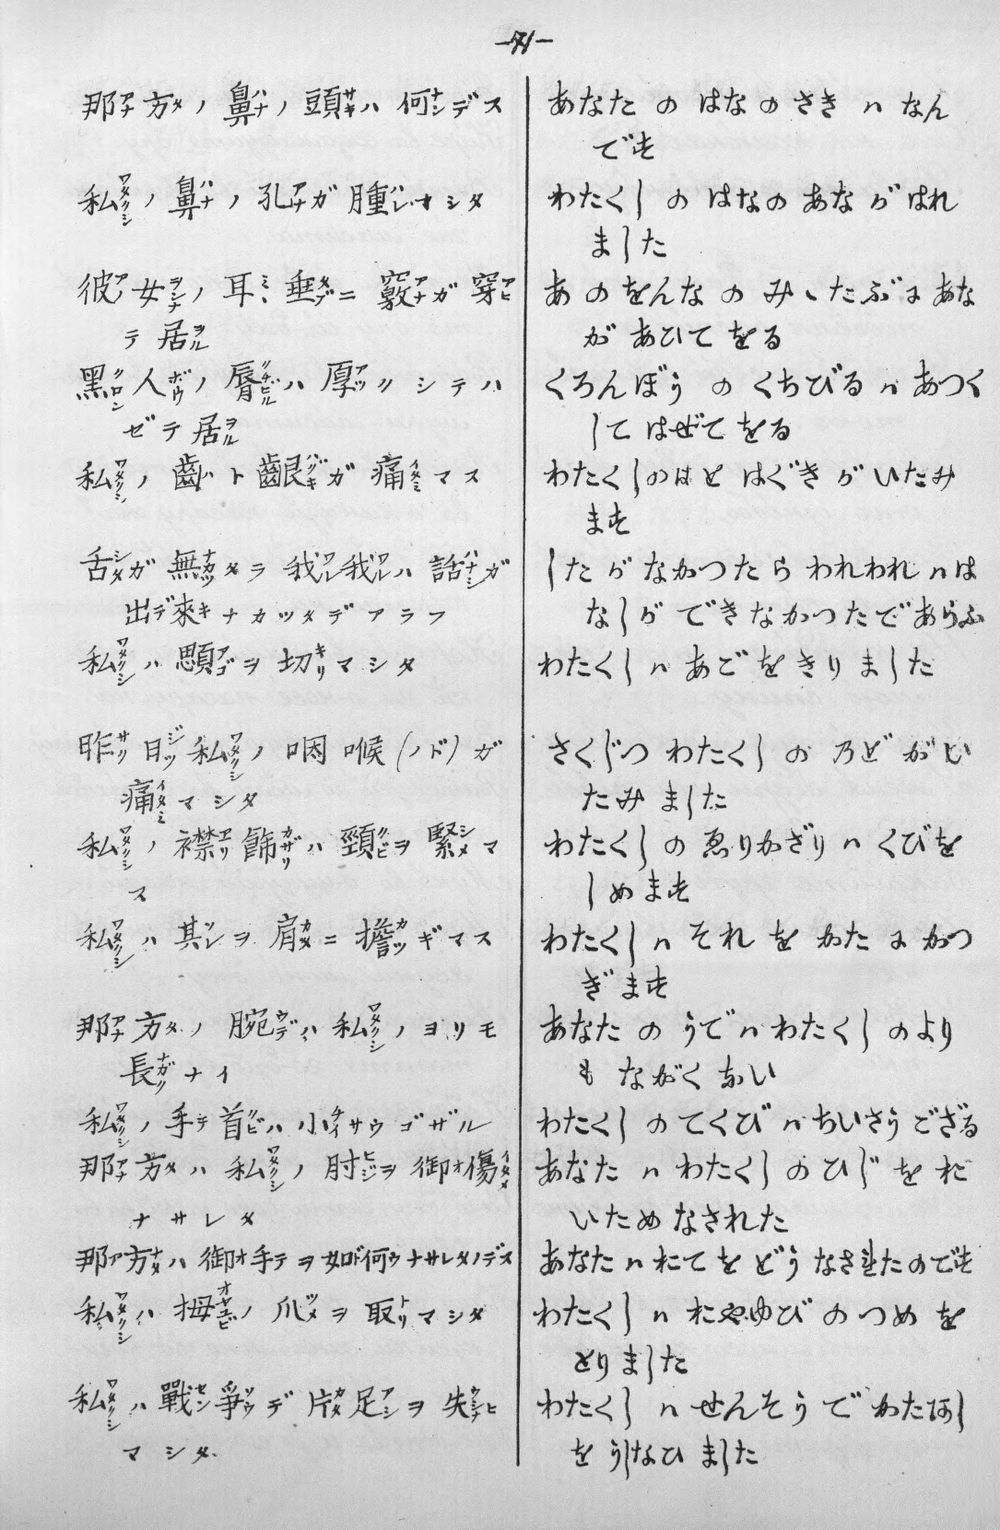 —71—
那方ノ鼻ノ頭ハ何デス
私ノ鼻ノ孔ガ腫レマシタ
彼女ノ耳垂ニ竅ガ穿
テ居
黑人ノ脣ハ厚クシテハ
ゼテ居
私ノ齒ト齦ガ痛マス
舌ガ無タラ我我ハ話ガ
出デ來キナカツタデアラフ
私ハ顋ヲ切マシタ
昨日私ノ咽喉(ノド)ガ
痛マシタ
私ノ襟飾ハ頸ヲ緊マ
ス
私ハ其ヲ肩ニ擔ギマス
那方ノ腕ハ私ノヨリモ
長ナイ
私ノ手首ハ小サウゴザル
那方ハ私ノ肘ヲ御傷
ナサレタ
那方ハ御手ヲ如何ナサレタノデス
私ハ拇ノ爪ヲ取マシタ
私ハ戰爭デ片足ヲ失ヒ
マシタ
あなた の はな の さき ハ なん
です
わたくし の はなの あな が はれ
ました
あ の をんな の みゝたぶに あな
が あひて をる
くろんぼう の くちびる ハ あつく
して はぜて をる
わたくしのはと はぐき が いたみ
ます
した が なかつたら われわれ ハ は
なし が できなかつたであらふ
わたくし ハ あご を きり ました
さくじつ わたくし の のど が い
たみ ました
わたくし の ゑりかざり ハ くびを
しめます
わたくし ハ それ を かた に かつ
ぎます
あなた の うで ハ わたくし のより
も ながく ない
わたくし の てくび ハ ちいさう ござる
あなた ハ わたくし の ひじ を お
いため なされた
あなた ハ おて を どう なされたのです
わたくし ハ おやゆび の つめ を
とりました
わたくし ハ せんそう で かたあし
を うしなひ ました